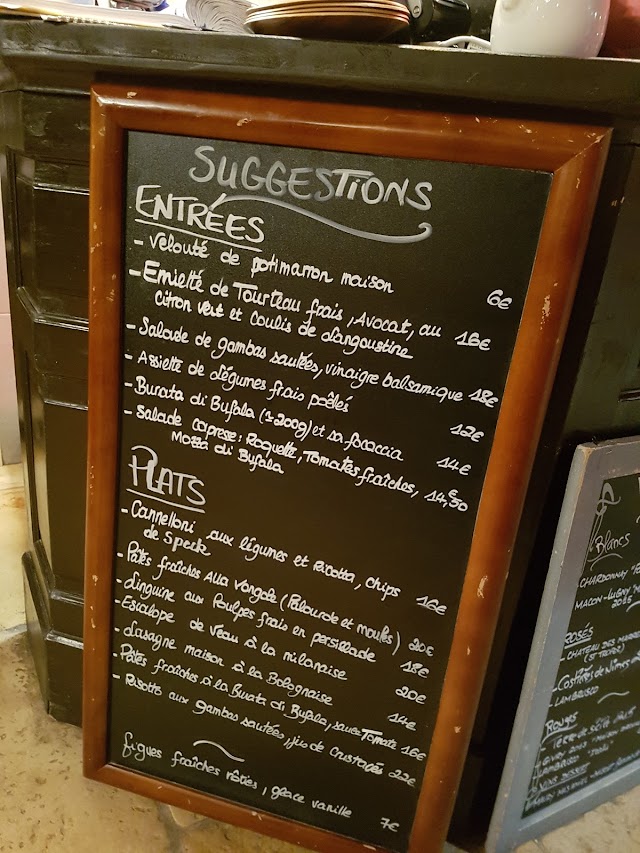 SUGGESTIONS
ENTRÉES
- Velouté de potimarron maison 6€
- Emietté de Tourteau frais, Avocat, au 16€
citron vert et coulis de langoustine
- Salade de gambas sautées, vinaigre balsamique 18€
- Assiette de légumes frais poêlés 12€
- Burata di Bufala (≃200g) et sa focaccia 14€
- Salade caprese: Roquette, Tomates fraîches, 14,50€
Mozza di Bufala
PLATS
- Cannelloni aux légumes et Ricotta, chips 16€
de Speck
- Pâtes fraîches aux Vongole (Palourde et moules) 20€
- Linguine aux Poulpes frais en persillade 18€
- Escalope de Veau à la milanaise 20€
- Lasagne maison à la Bolognaise 14€
- Pâtes fraîches à la Burata di Bufala, sauce Tomate 16€
- Risotto aux gambas sautées, jus de Crustacés 22€
figues fraîches rôties, glace vanille 7€
Blancs
CHARDONNAY
MACON-LUGNY
2015
ROSÉS
- CHATEAU DES
(ST TROPEZ)
- Costières de Nîmes
- LAMBRUSCO
Rouges
- GIVRY 2013
- LAMBRUSCO